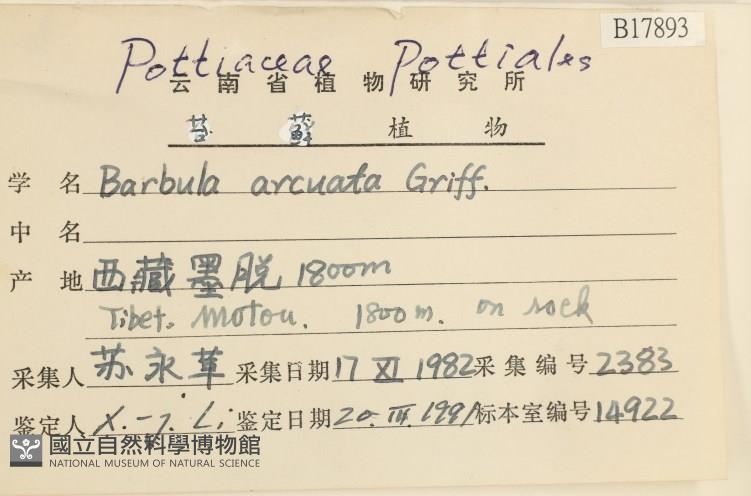 B17893
Pottiaceae Pottiales
云南省植物研究所
苔藓植物
学名 Barbula arcuata Griff.
中名
产地 西藏墨脱 1800m
Tibet. Motou. 1800m. on rock
采集人 苏永革 采集日期 17 XI 1982 采集编号 2383
鉴定人 X.-J. Li 鉴定日期 20. III. 1991 标本室编号 14922
國立自然科學博物館
NATIONAL MUSEUM OF NATURAL SCIENCE